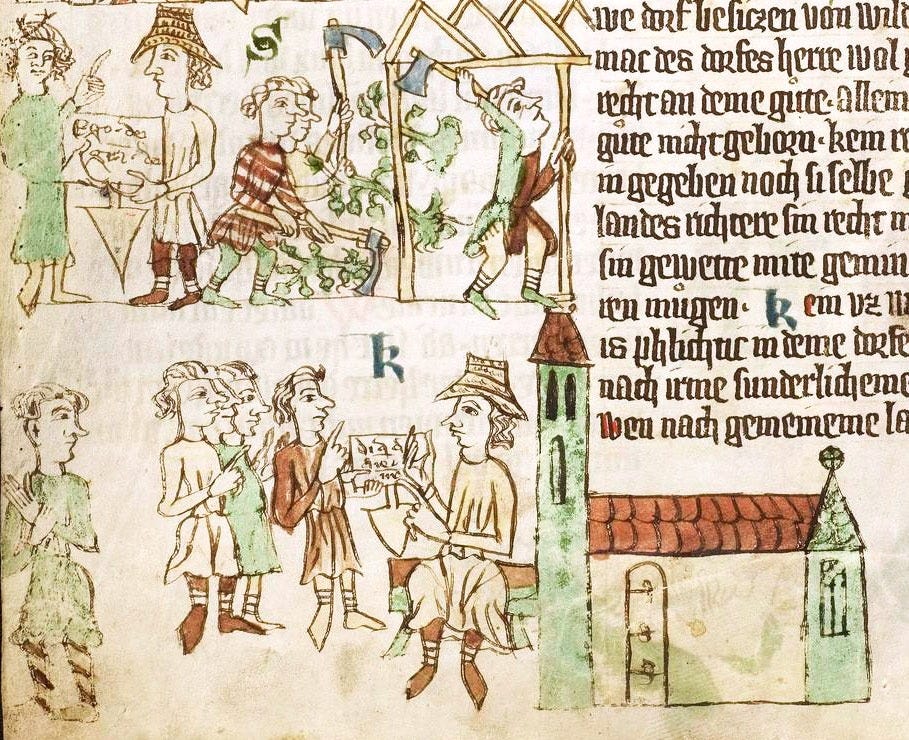 S
we dorf besiczen von wild
mac des dorfes herre wol
recht an deme gůte. allein
gůte nicht geborn. kein re
in gegeben noch si selbe
landes richtere sin recht
sin gewette mite gemin
ren můgen. k ein vz w
is phlichtic in deme dorfe
nach irme sunderlicheme
wen nach gemeineme la
k
Ego do